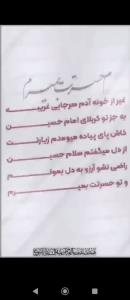 حسرت بمیرم
غیر از خونه آدم هرجایی غریبه
به جز تو کربلای امام حسین
کاش پای پیاده میومدم زیارت
از دل میگفتم سلام حسین
راضی نشو آرزو به دل بمونم
و تو حسرتت بمیرم